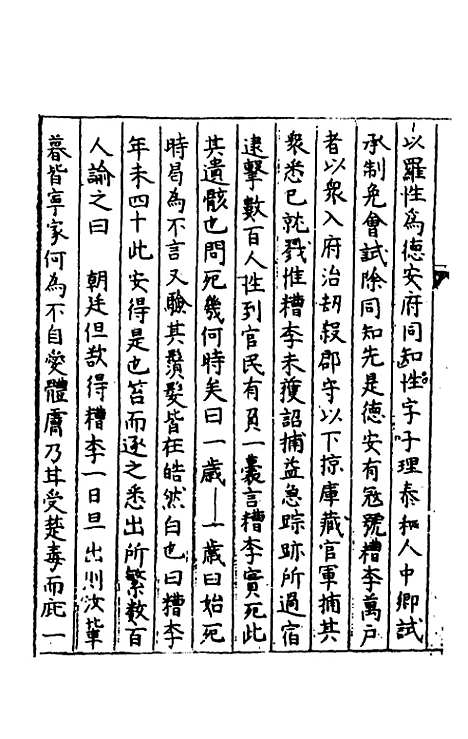 以羅性為德安府同知性字子理泰和人中鄉試
承制免會試除同知先是德安有寇號糟李萬戶
者以衆入府治刼殺郡守以下掠庫藏官軍捕其
衆悉已就戮惟糟李未獲詔捕益急踪跡所過宿
逮擊數百人性到官民有負一囊言糟李實死此
其遺骸也問死幾何時矣曰一歲一歲曰始死
時曷為不言又驗其鬚髮皆在皓然白也曰糟李
年未四十此安得是也笞而逐之悉出所繋數百
人諭之曰 朝廷但欲得糟李一日旦出則汝輩
暮皆寧家何為不自愛體膚乃甘受楚毒而庇一